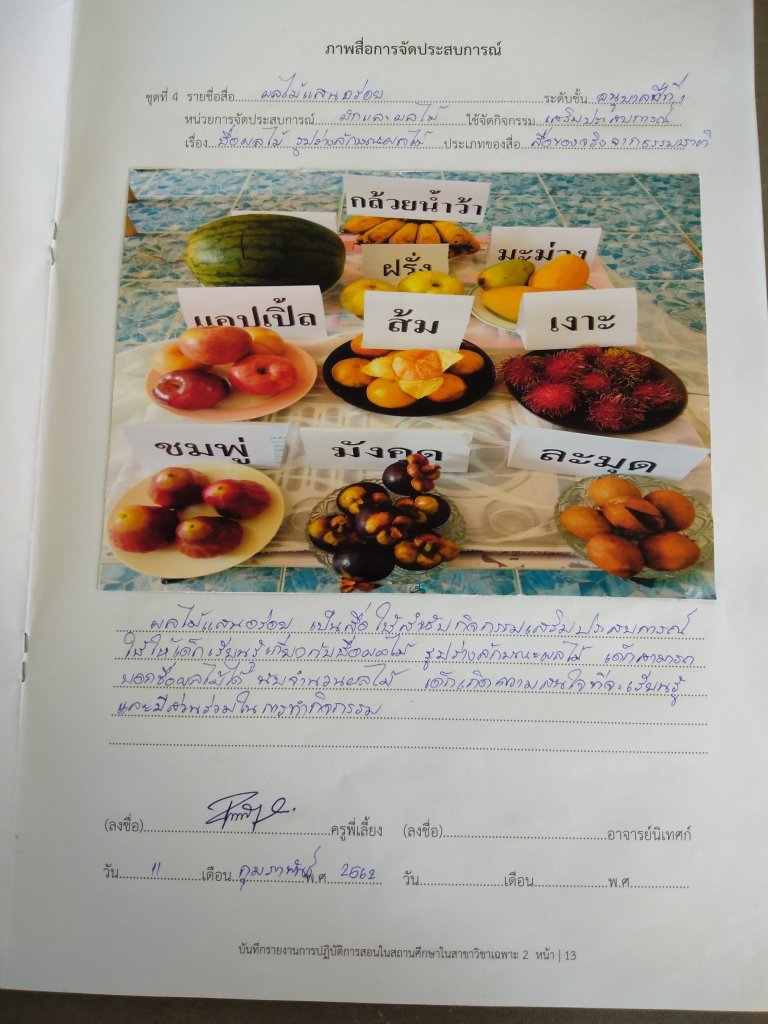 ภาพสื่อการจัดประสบการณ์
ชุดที่ 4 รายชื่อสื่อ ผลไม้แสนอร่อย ระดับชั้น อนุบาลปีที่ 1
หน่วยการจัดประสบการณ์ ผักและผลไม้ ใช้จัดกิจกรรม เสริมประสบการณ์
เรื่อง ชื่อผลไม้ รูปร่างลักษณะผลไม้ ประเภทของสื่อ สื่อของจริงจากธรรมชาติ
กล้วยน้ำว้า
ฝรั่ง มะม่วง
แอปเปิ้ล ส้ม เงาะ
ชมพู่ มังคุด ละมุด
ผลไม้แสนอร่อย เป็นสื่อใช้สำหรับกิจกรรมเสริมประสบการณ์
ใช้ให้เด็กเรียนรู้เกี่ยวกับชื่อผลไม้ รูปร่างลักษณะผลไม้ เด็กสามารถ
บอกชื่อผลไม้ได้ นับจำนวนผลไม้ เด็กเกิดความสนใจที่จะเรียนรู้
และมีส่วนร่วมในการทำกิจกรรม
(ลงชื่อ) ครูพี่เลี้ยง (ลงชื่อ) อาจารย์นิเทศก์
วัน 11 เดือน กุมภาพันธ์ พ.ศ 2562 วัน เดือน พ.ศ
บันทึกรายงานการปฏิบัติการสอนในสถานศึกษาในสาขาวิชาเฉพาะ 2 หน้า | 13